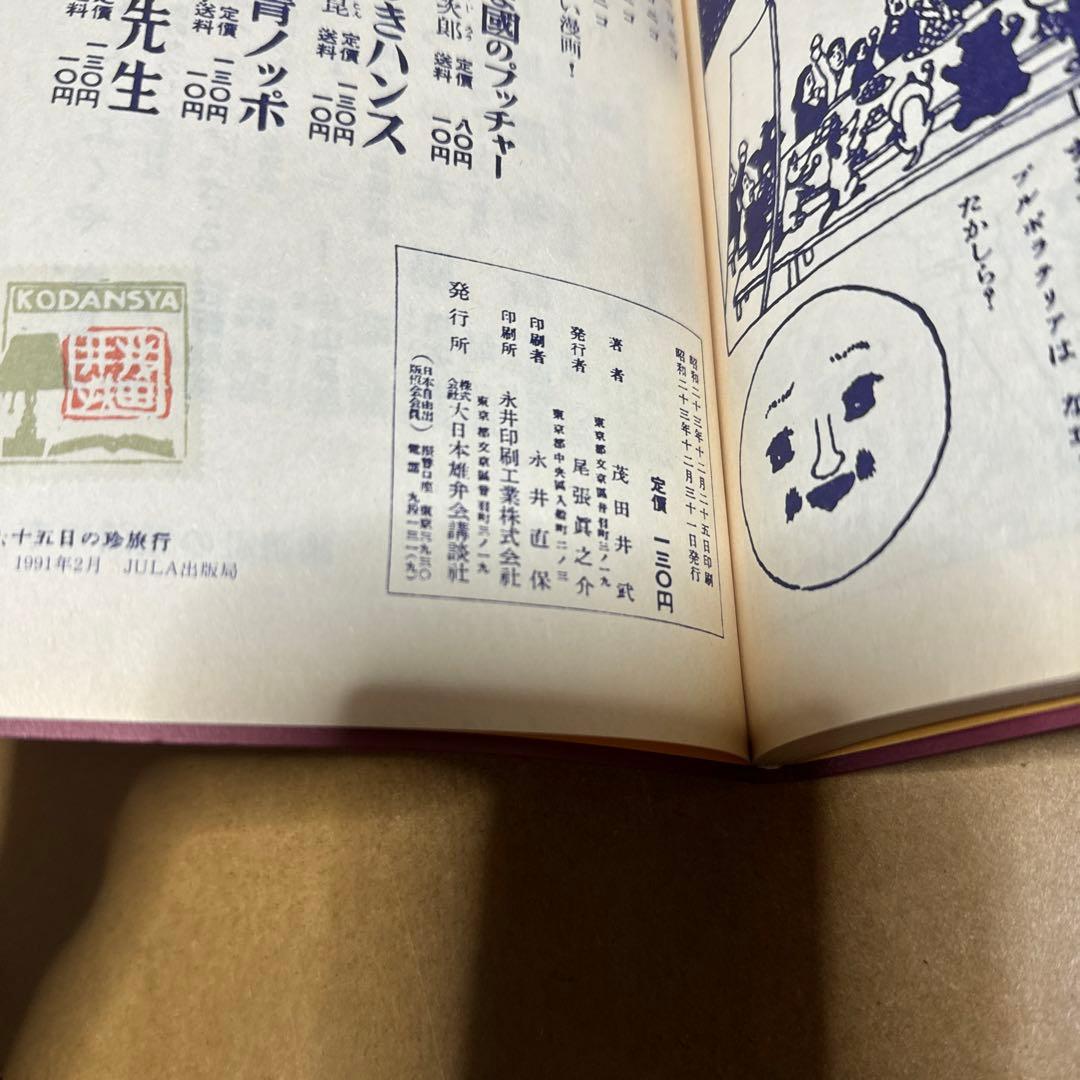 たかしら?
ブルボラタリアは
い漫画!
國のプッチャー
次郎 定價 八〇円
送料 一〇円
きハンス
定價 一三〇円
送料 一〇円
青ノッポ
定價 一三〇円
送料 一〇円
先生
定價 一三〇円
送料 一〇円
昭和二十三年十二月二十五日印刷
昭和二十三年十二月三十一日発行
定價 一三〇円
著者 茂田井武
東京都文京區音羽町三ノ一九
発行者 尾張眞之介
東京都中央區入船町二ノ三
印刷者 永井直保
印刷所 永井印刷工業株式会社
東京都文京區音羽町三ノ一九
発行所 株式会社 大日本雄弁会講談社
(日本自由出版協会会員) 振替口座 東京三九三〇
電話 九段一三一(九)
KODANSYA
十五日の珍旅行
1991年2月 JULA出版局